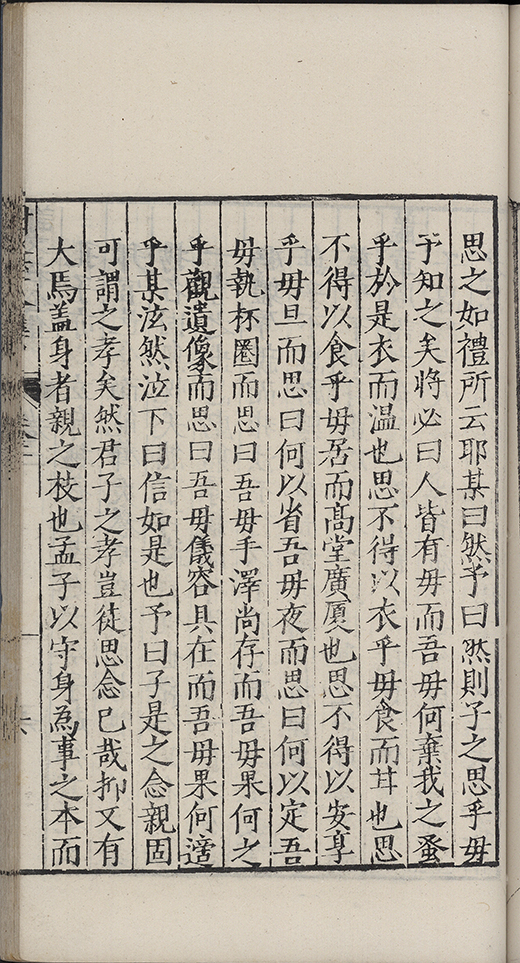 思之如禮所云耶某曰然予曰然則子之思乎毋
予知之矣將必曰人皆有毋而吾毋何棄我之蚤
乎於是衣而温也思不得以衣乎毋食而甘也思
不得以食乎毋居而高堂廣厦也思不得以安享
乎毋旦而思曰何以省吾毋夜而思曰何以定吾
毋執杯圈而思曰吾毋手澤尚存而吾毋果何之
乎觀遺像而思曰吾毋儀容具在而吾毋果何適
乎某泫然泣下曰信如是也予曰子是之念親固
可謂之孝矣然君子之孝豈徒思念已哉抑又有
大焉盖身者親之枝也孟子以守身為事之本而